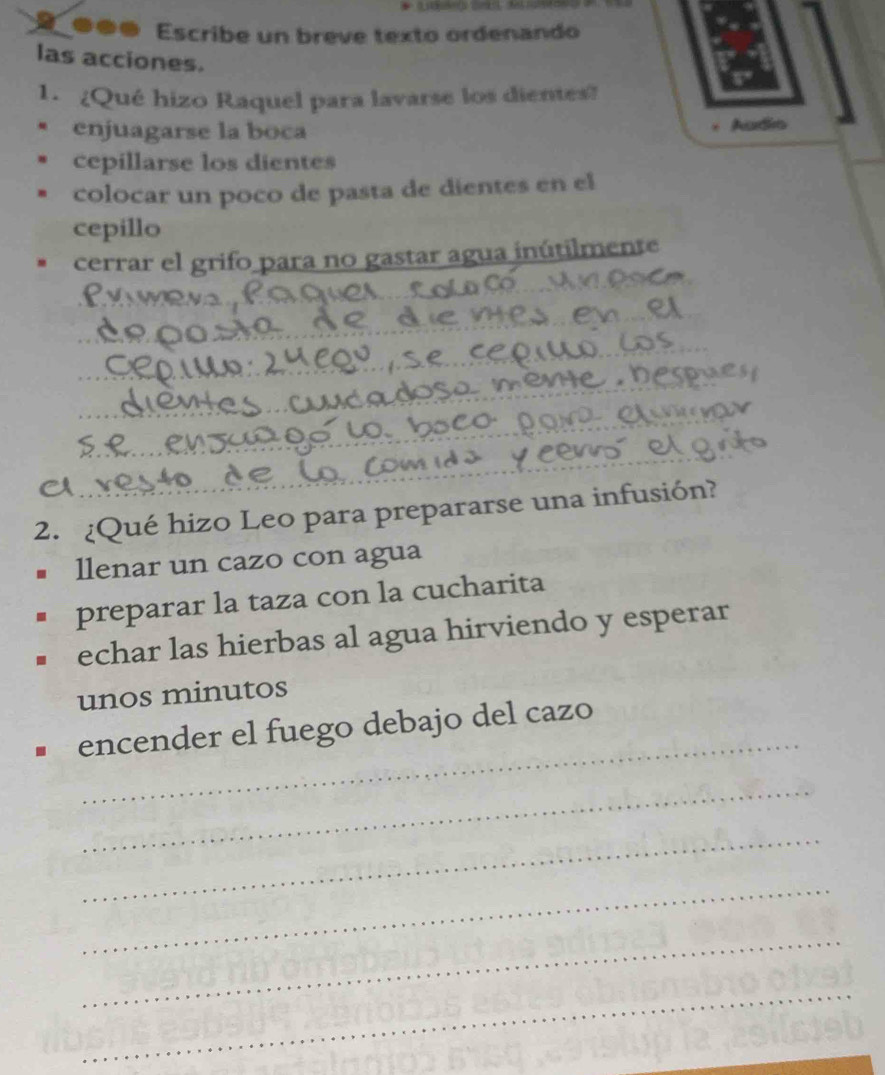 Escribe un breve texto ordenando
las acciones.
1. ¿Qué hizo Raquel para lavarse los dientes?
▪ enjuagarse la boca
Audio
▪ cepillarse los dientes
▪ colocar un poco de pasta de dientes en el
cepillo
▪ cerrar el grifo para no gastar agua inútilmente
Primero, Raquel colocó un poco
de posta de dientes en el
cepillo. Luego, se cepilló los
dientes cuicadosa mente. Despues,
se ensuagó la boca para eliminar
el resto de la comida y cerró el grifo
2. ¿Qué hizo Leo para prepararse una infusión?
▪ llenar un cazo con agua
▪ preparar la taza con la cucharita
▪ echar las hierbas al agua hirviendo y esperar
unos minutos
▪ encender el fuego debajo del cazo